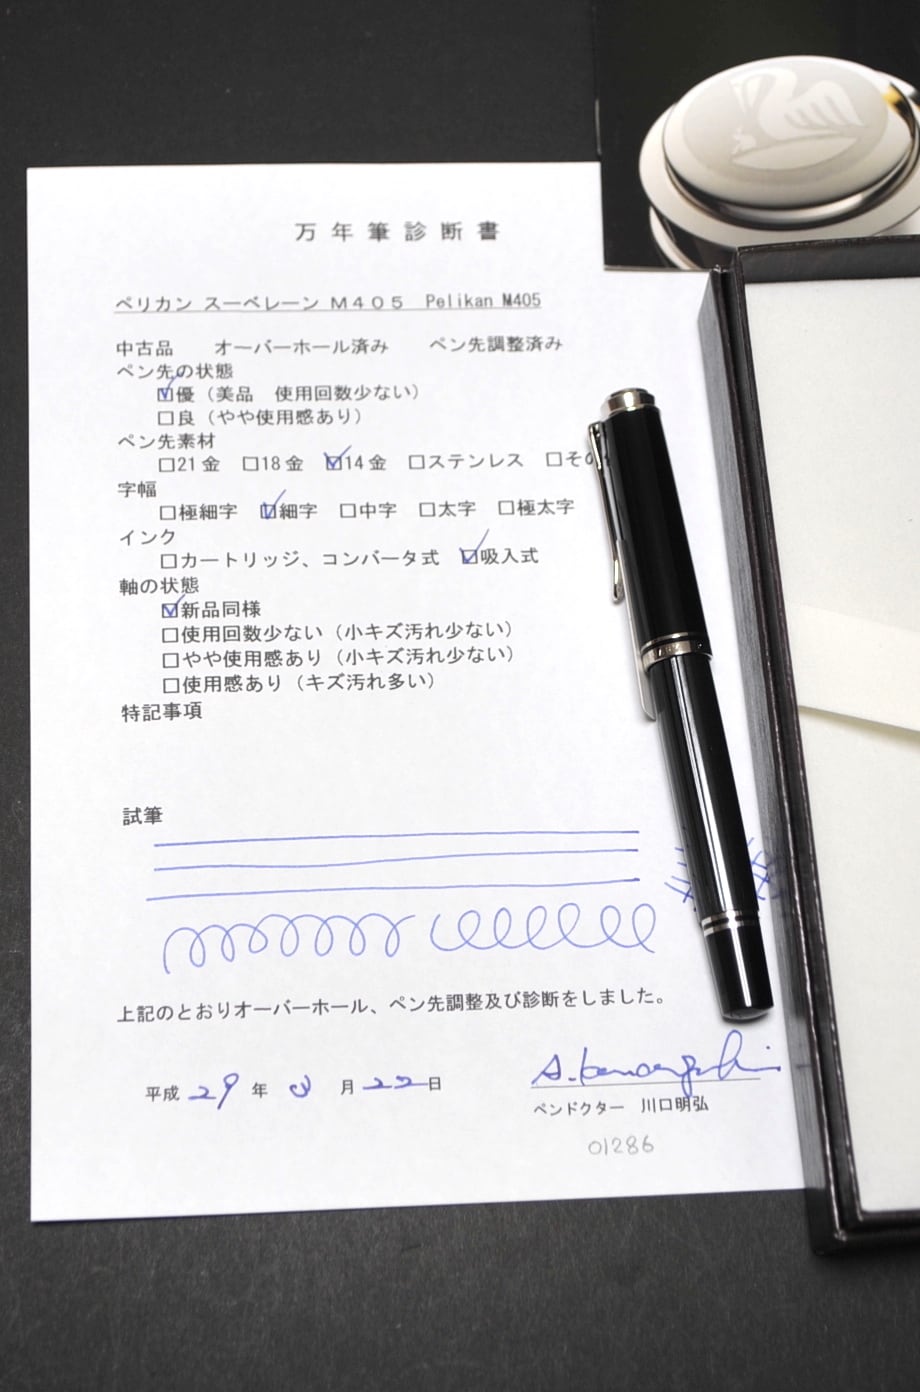 万年筆診断書
ペリカン スーベレーン M405 Pelikan M405
中古品 オーバーホール済み ペン先調整済み
ペン先の状態
☑優（美品 使用回数少ない）
□良（やや使用感あり）
ペン先素材
□21金 □18金 ☑14金 □ステンレス □その
字幅
□極細字 ☑細字 □中字 □太字 □極太字
インク
□カートリッジ、コンバータ式 ☑吸入式
軸の状態
☑新品同様
□使用回数少ない（小キズ汚れ少ない）
□やや使用感あり（小キズ汚れ少ない）
□使用感あり（キズ汚れ多い）
特記事項
試筆
上記のとおりオーバーホール、ペン先調整及び診断をしました。
平成 29 年 月 22 日
ペンドクター 川口明弘
01286